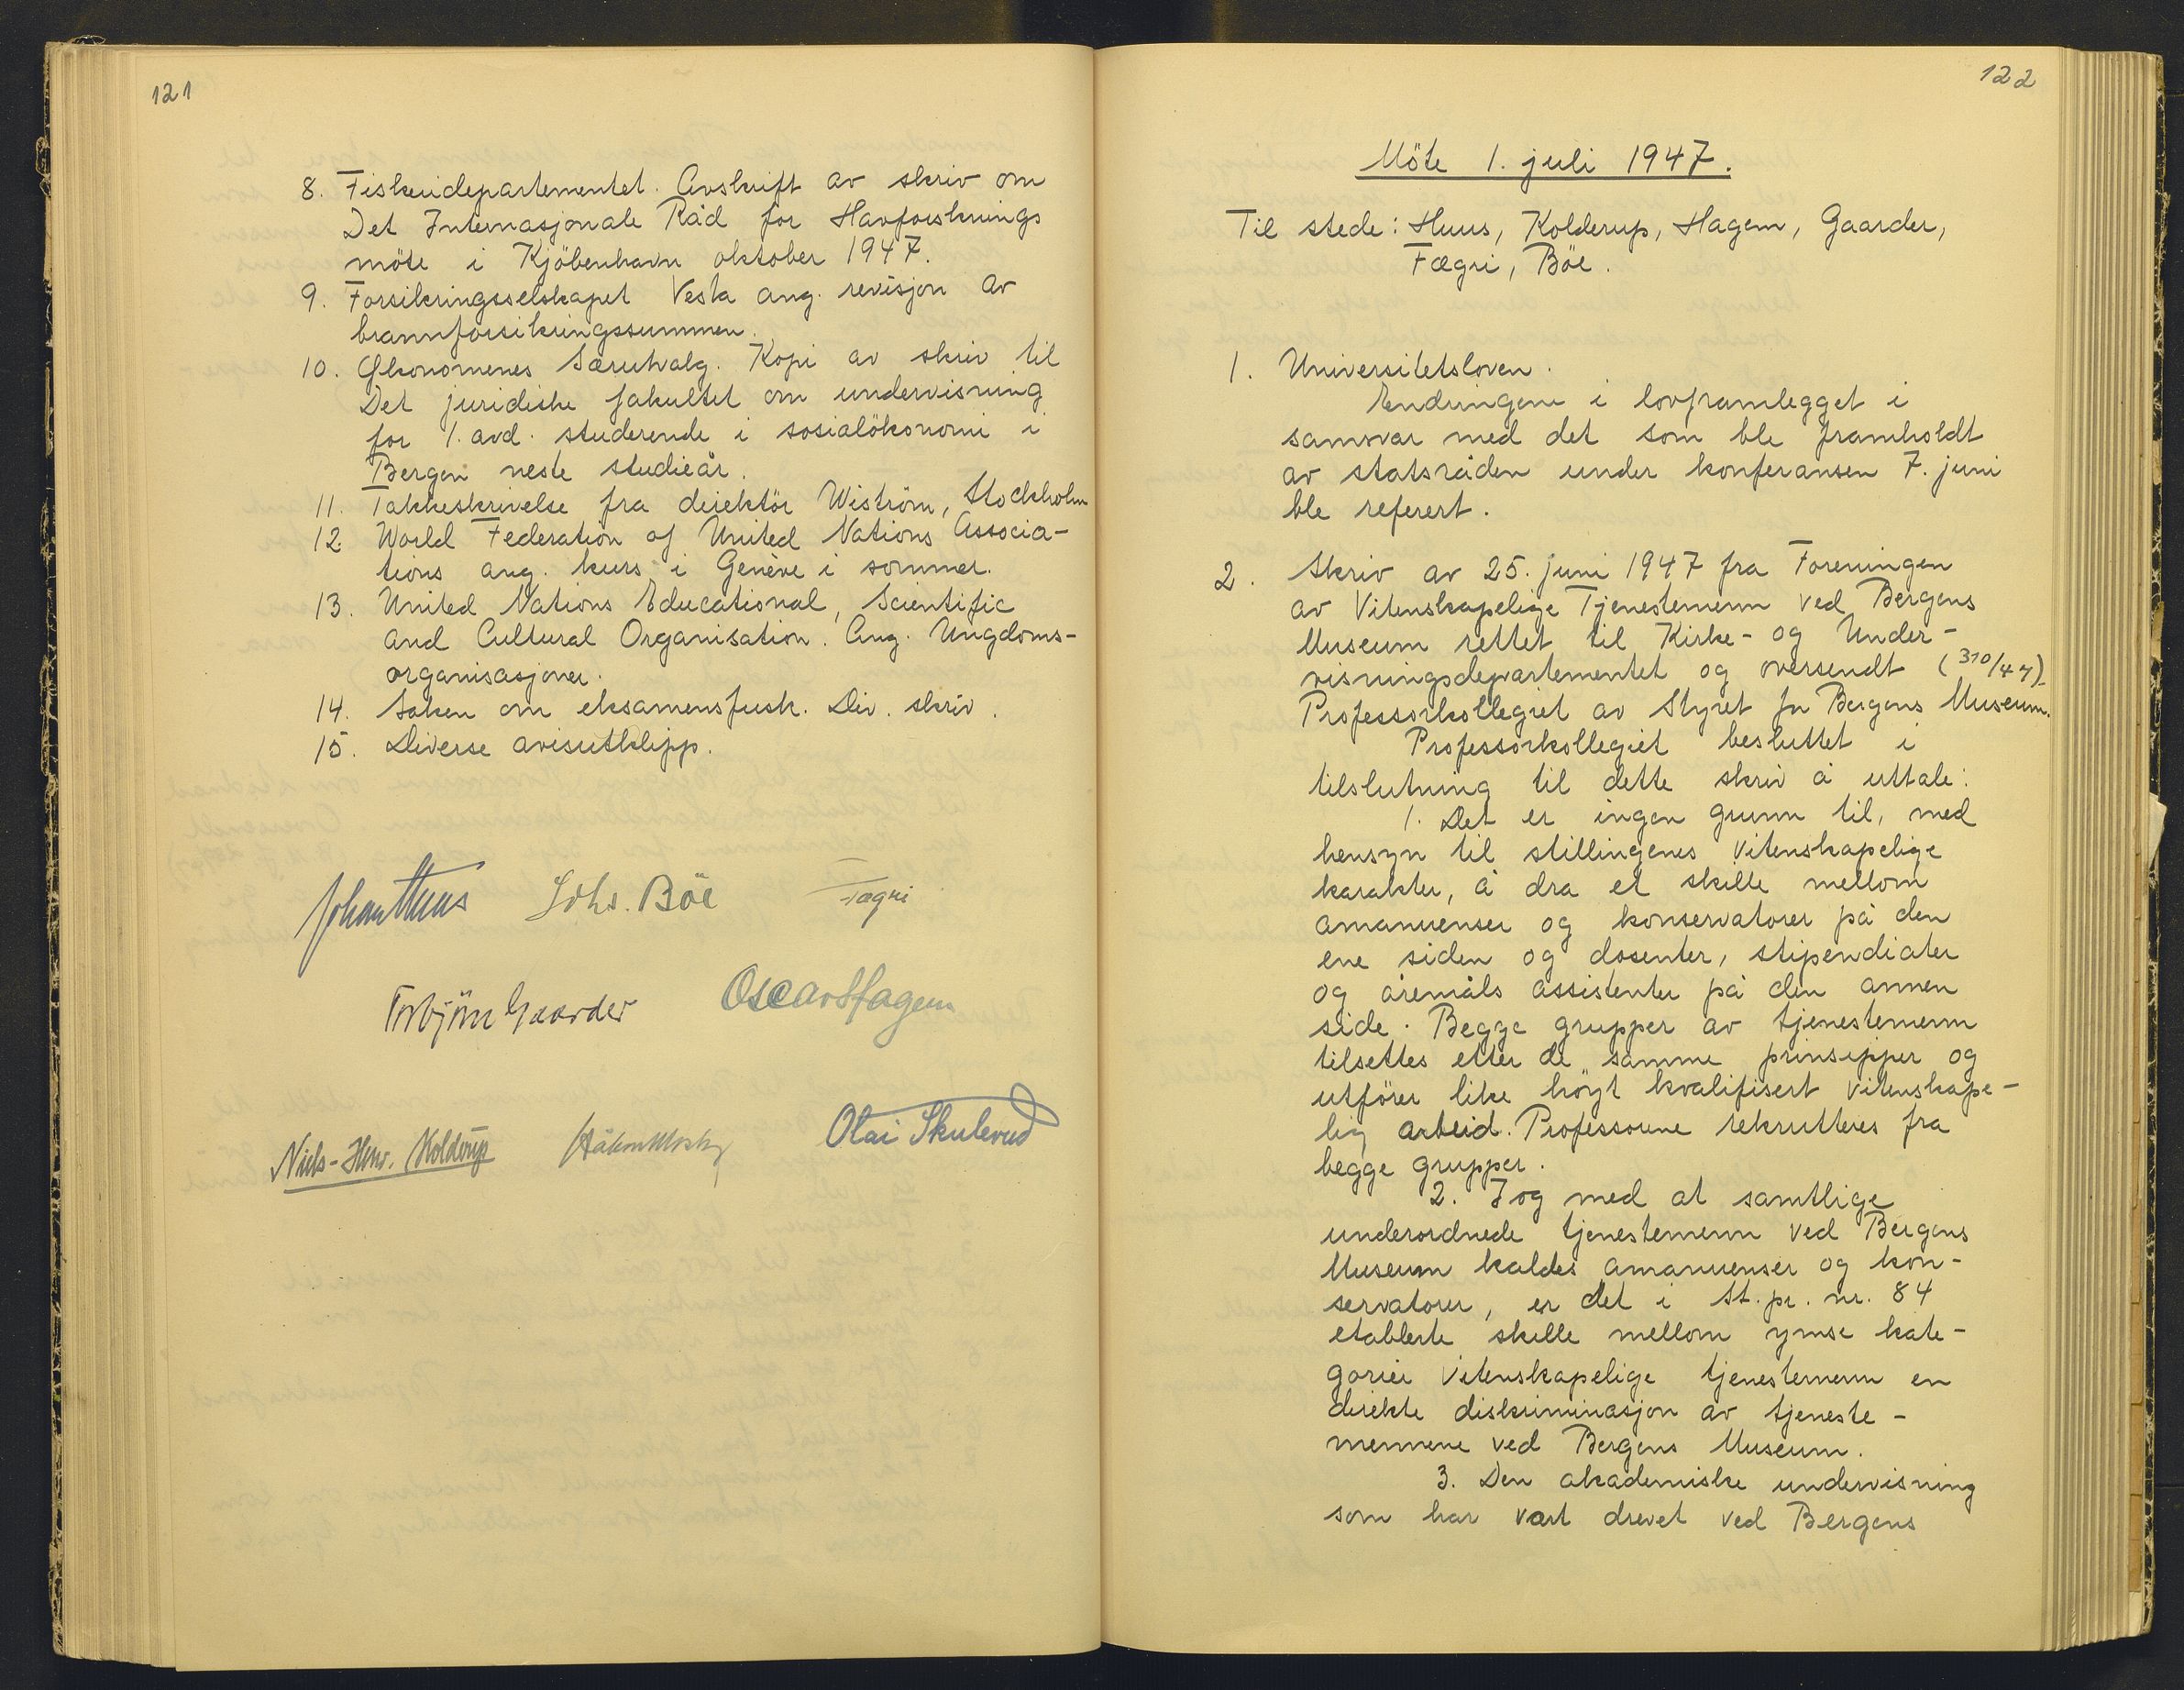 121
8. Fiskeridepartementet. Avskrift av skriv om
Det Internasjonale Råd for Havforsknings
möte i Kjöbenhavn oktober 1947.
9. Forsikringsselskapet Vesta ang. revisjon av
brannforsikringssummen.
10. Økonomenes Særutvalg. Kopi av skriv til
Det juridiske fakultet om undervisning
for 1. avd. studerende i sosialökonomi i
Bergen neste studieår.
11. Takkeskrivelse fra direktör Wiström, Stockholm
12. World Federation of United Nations Associa-
tions ang. kurs i Genève i sommer.
13. United Nations Educational, Scientific
and Cultural Organisation. Ang. Ungdoms-
organisasjoner.
14. Saken om eksamensfusk. Div. skriv.
15. Diverse avisutklipp.
Johan Huus Johs. Böe Fægri
Torbjörn Gaarder Oscar Hagem
Niels-Henr. Kolderup Håkon Mosby Olai Skulerud
122
Möte 1. juli 1947.
Til stede: Huus, Kolderup, Hagem, Gaarder,
Fægri, Böe.
1. Universitetsloven.
Endringene i lovframlegget i
samsvar med det som ble framholdt
av statsråden under konferansen 7. juni
ble referert.
2. Skriv av 25. juni 1947 fra Foreningen
av Vitenskapelige Tjenestemenn ved Bergens
Museum rettet til Kirke- og Under-
visningsdepartementet og oversendt (310/47)
Professorkollegiet av Styret for Bergens Museum.
Professorkollegiet besluttet i
tilslutning til dette skriv å uttale:
1. Det er ingen grunn til, med
hensyn til stillingenes vitenskapelige
karakter, å dra et skille mellom
amanuenser og konservatorer på den
ene siden og dosenter, stipendiater
og åremåls assistenter på den annen
side. Begge grupper av tjenestemenn
tilsettes etter de samme prinsipper og
utförer like höyt kvalifisert vitenskape-
lig arbeid. Professorene rekrutteres fra
begge grupper.
2. I og med at samtlige
underordnede tjenestemenn ved Bergens
Museum kaldes amanuenser og kon-
servatorer, er det i St. pr. nr. 84
etablerte skille mellom ymse kate-
gorier vitenskapelige tjenestemenn en
direkte diskriminasjon av tjeneste-
mennene ved Bergens Museum.
3. Den akademiske undervisning
som har vært drevet ved Bergens